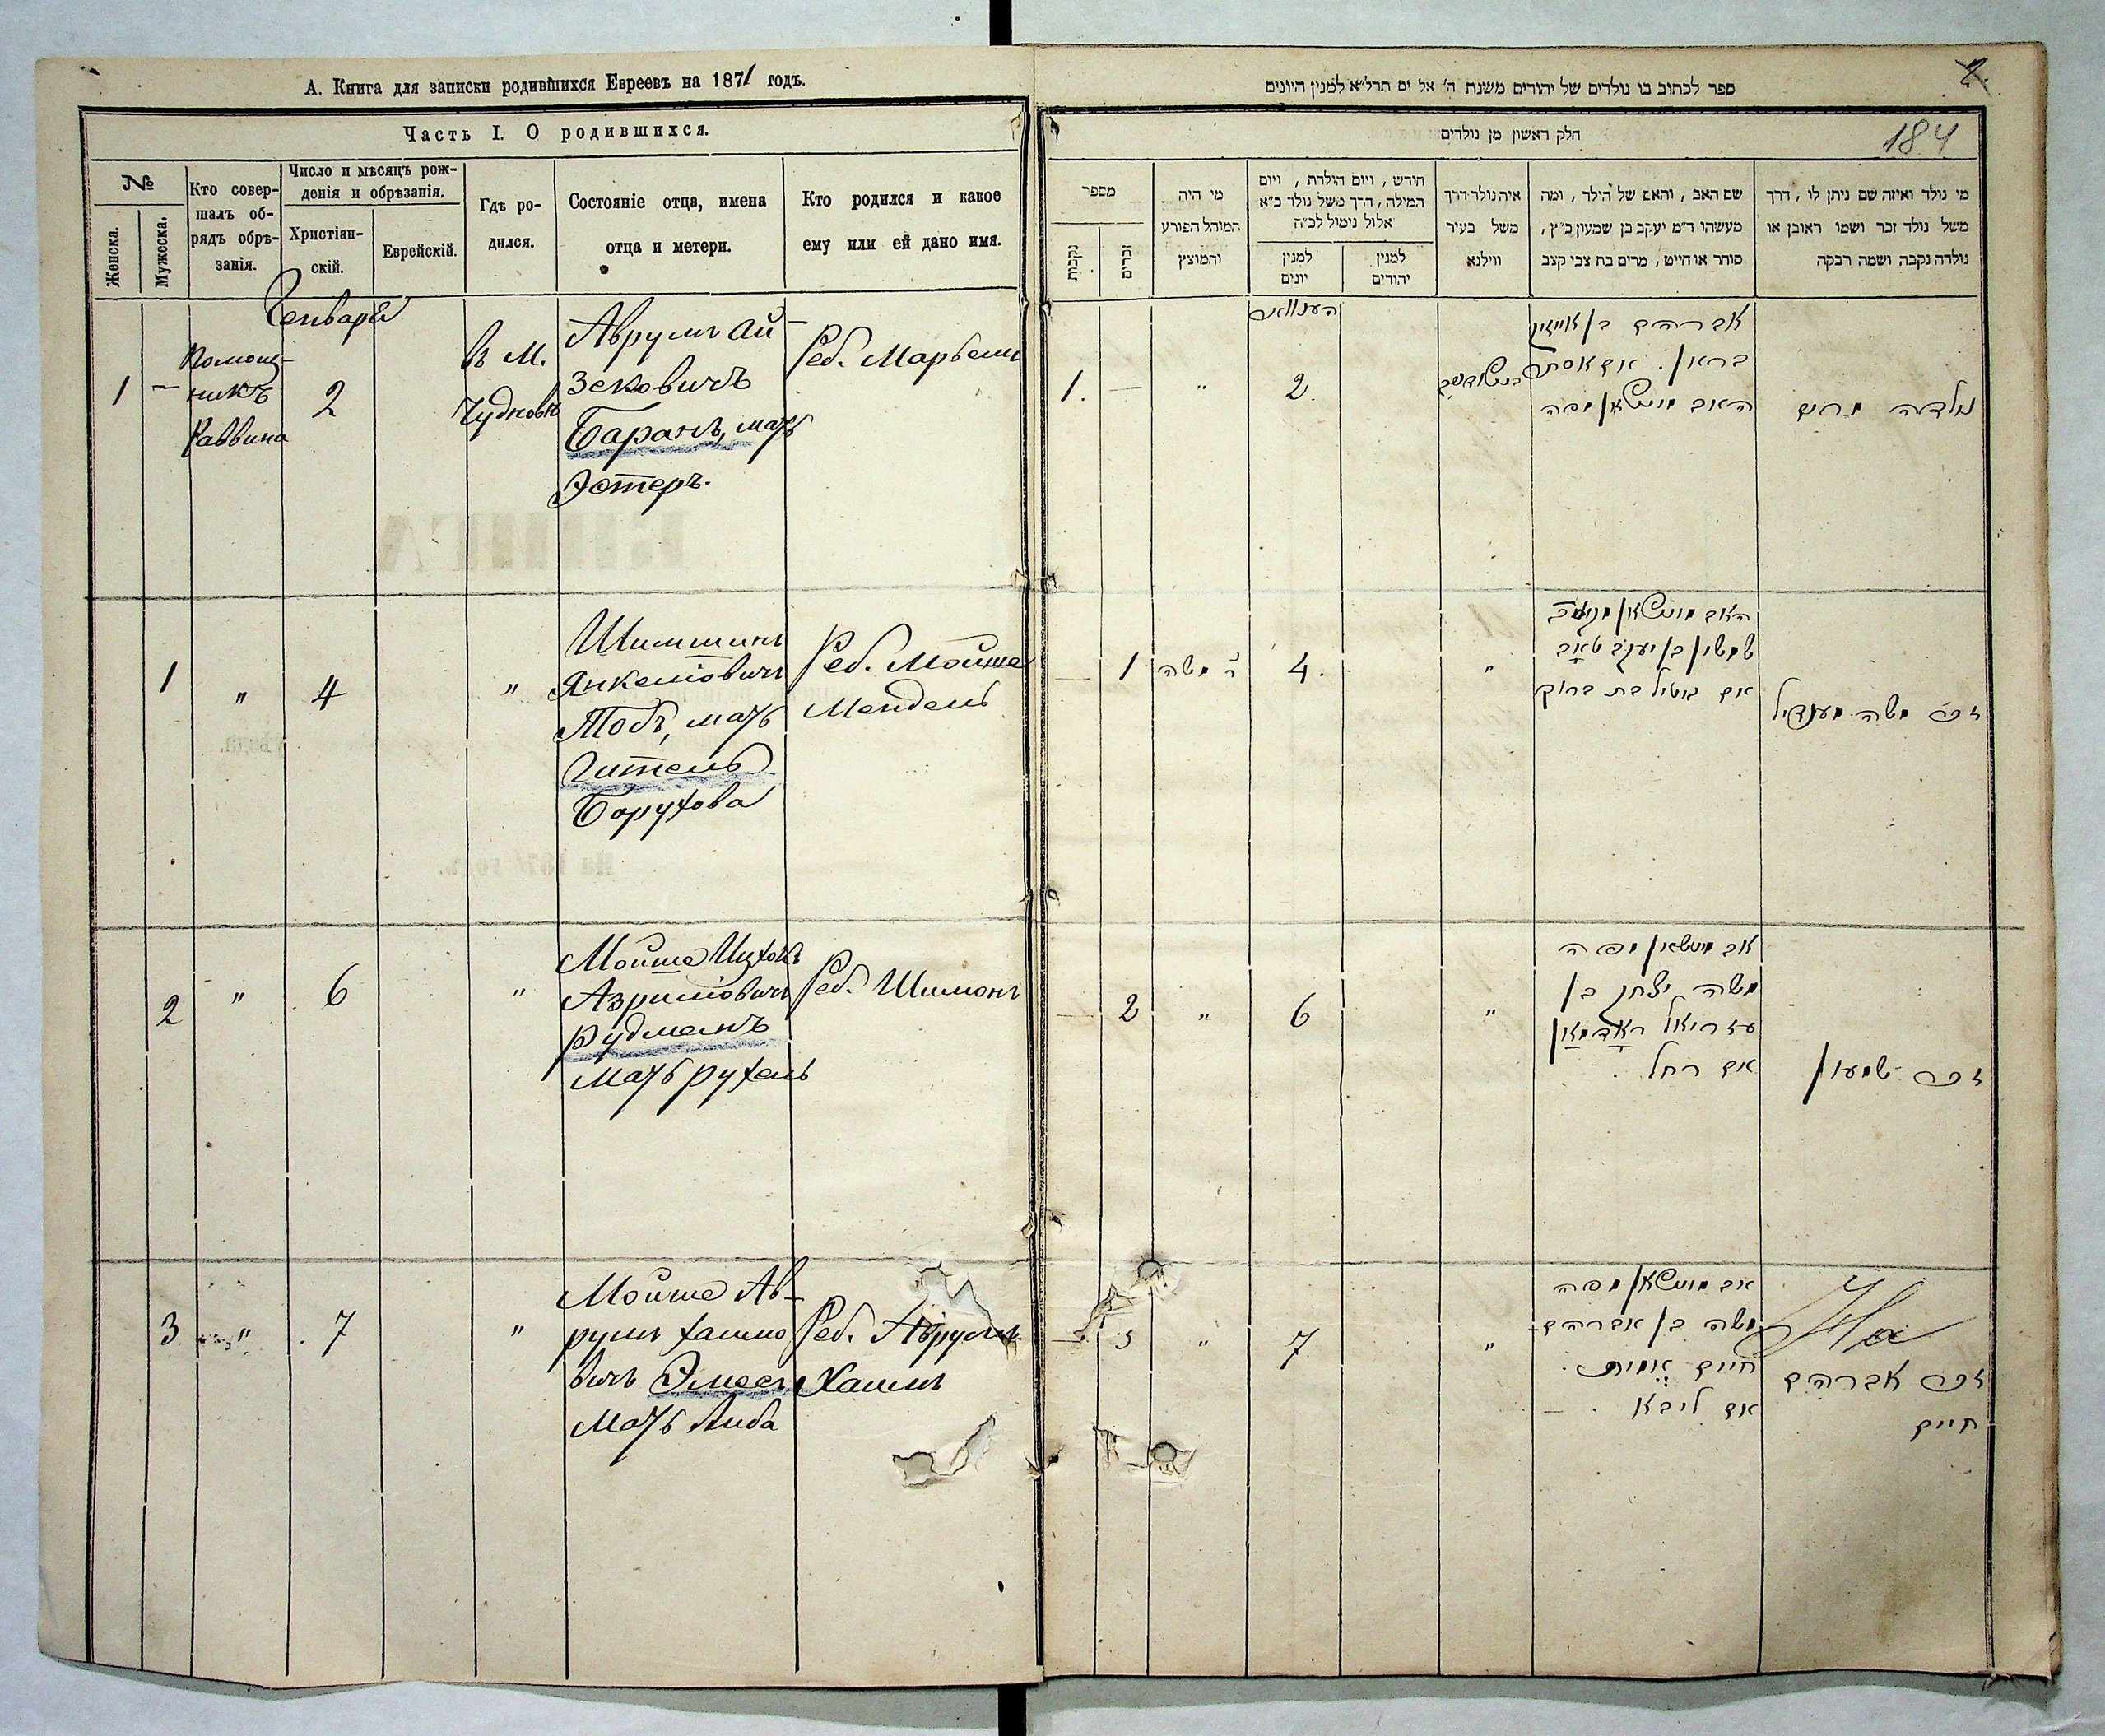 А. Книга для записки родившихся Евреевъ на 1871 годъ.
Часть I. О родившихся.
№
Женска.
Мужеска.
Кто совер-
шалъ об-
рядъ обрѣ-
занія.
Число и мѣсяцъ рож-
денія и обрѣзанія.
Христіан-
скій.
Еврейскій.
Гдѣ ро-
дился.
Состояніе отца, имена
отца и метери.
Кто родился и какое
ему или ей дано имя.
Генваря
1
—
Помощ-
никъ
Раввина
2
в м.
Чудновѣ
Аврумъ Ай-
зековичъ
Баранъ, мать
Эстеръ.
Реб.
1
"
4
"
Янкелювичъ
Тобъ, мать
Гитель
Борухова
Реб. Мойше
Мендель
2
"
6
"
Мойше Ицхокъ
Азрилювичъ
Рудманъ
мать Рухель
Реб. Шимонъ
3
"
7
"
Мойше Ав-
румъ Хаимо
вичъ Эмесъ
мать Либа
Реб. Аврумъ
Хаимъ
2.
ספר לכתוב בו נולדים של יהודים משנת ה' אל ים תרל"א למנין היונים
חלק ראשון מן נולדים
184
מספר
נקבות
זכרים
מי היה
המוהל הפורע
והמוצץ
חודש, ויום הולדת, ויום
המילה, דרך משל נולד כ"א
אלול נימול לכ"ה
למנין
יונים
למנין
יהודים
איה נולד דרך
משל בעיר
ווילנא
שם האב, והאם של הילד, ומה
מעשהו ד"מ יעקב בן שמעון כ"ץ,
סוחר או חייט, מרים בת צבי קצב
מי נולד ואיזה שם ניתן לו, דרך
משל נולד זכר ושמו ראובן או
נולדה נקבה ושמה רבקה
1.
—
"
2.
אברהם בן אייזיק
באראן. אם אסתר
האב
נולדה
1
ר' משה
4.
"
האב
שמשון בן יעקב טאב
אם גיטיל בת ברוך
זכר משה מענדיל
2
"
6
"
אב
משה יצחק בן
עזריאל ראדמאן
אם רחל.
זכר שמעון
3
"
7
"
אב
משה בן אברהם
חיים אמית.
אם ליבא
זכר אברהם
חיים